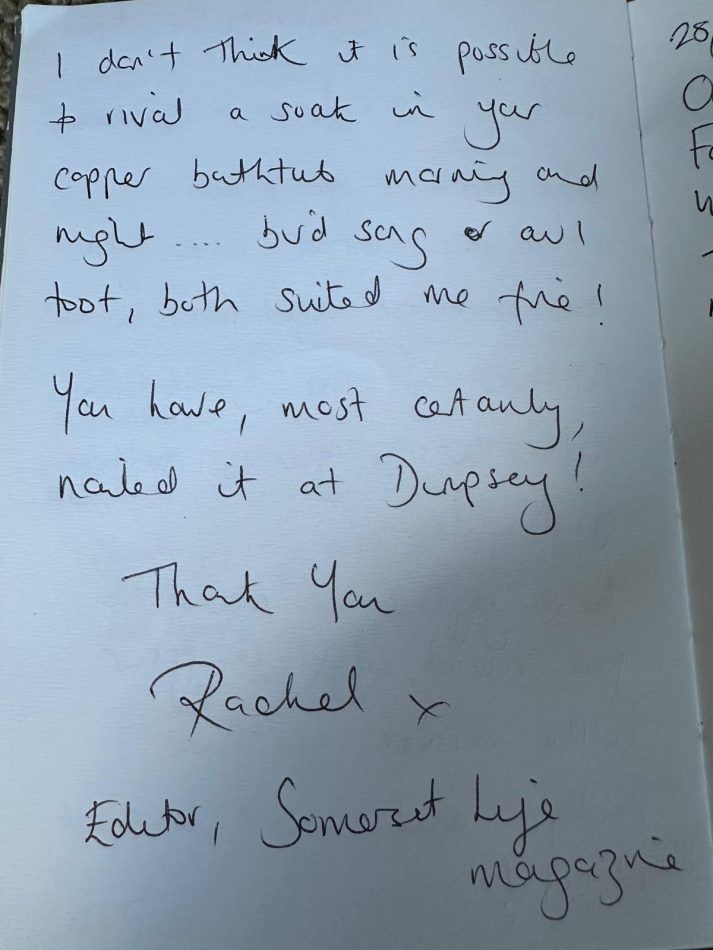 I don't think it is possible
to rival a soak in your
copper bathtub morning and
night .... bird song or owl
toot, both suited me fine!
You have, most certainly,
nailed it at Dimpsey!
Thank You
Rachel x
Editor, Somerset Life
magazine
28/